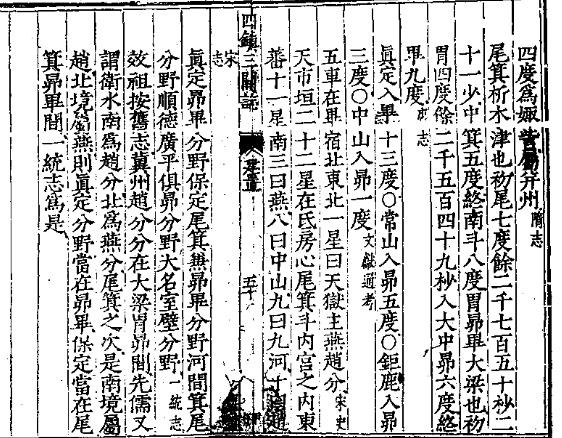 四度爲娵訾屬幷州隋志
尾箕析木津也初尾七度餘二千七百五十杪二
十一少中箕五度終南斗八度胃昴畢大梁也初
胃四度餘二千五百四十九杪入大中昴六度終
畢九度 志
眞定入畢十三度〇常山入昴五度〇鉅鹿入昴
三度〇中山入昴一度文獻通考
五車在畢宿北東北一星曰天獄主燕趙分宋史
天市垣二十二星在氐房心尾箕斗内宮之内東
蕃十一星南三曰燕八曰中山九曰九河十 趙
四鎮三關誌 五十
宋志
眞定昴畢分野保定尾箕無昴畢分野河間箕尾
分野順德廣平俱昴分野大名室壁分野一統志
效祖按舊志冀州趙分分在大梁胃昴間先儒又
謂衛水南爲趙分北爲燕分尾箕之次是南境屬
趙北境屬燕則眞定分野當在昴畢保定當在尾
箕昴畢間一統志爲是